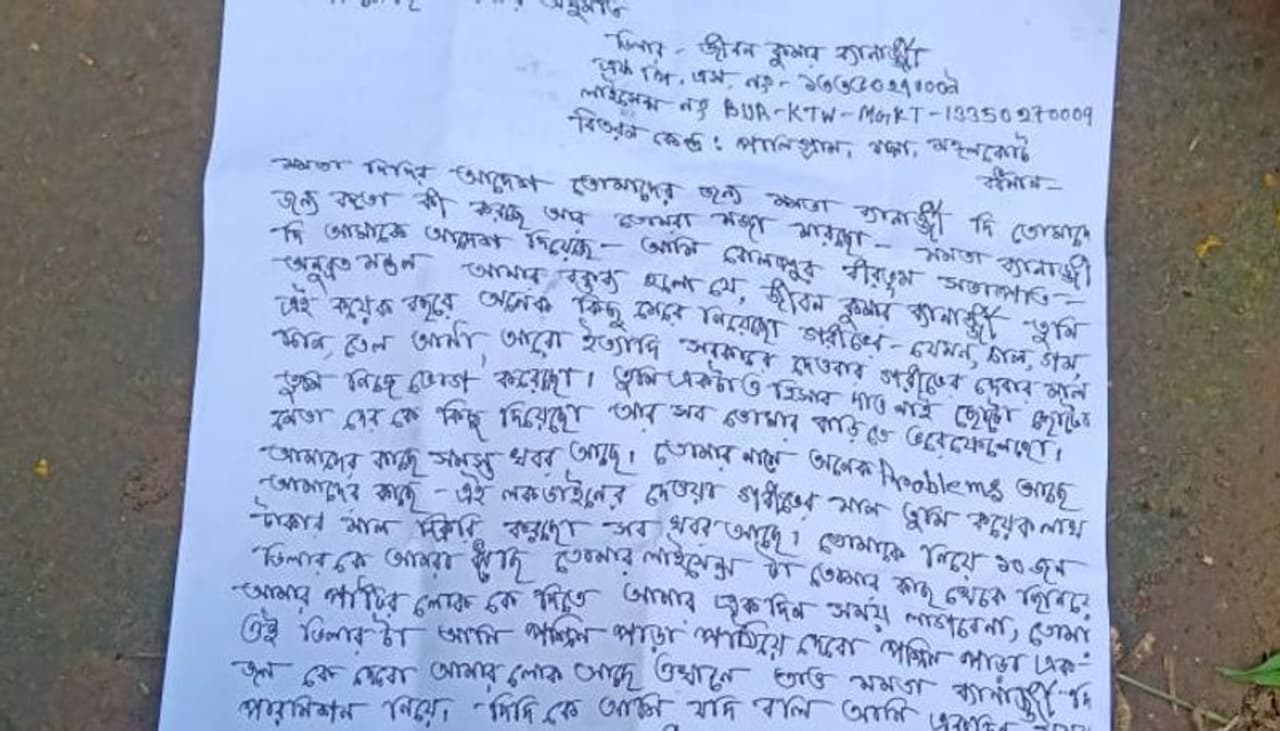 অনুমতি
ডিলার - জীবন কুমার ব্যানার্জ্জী
এফ পি. এস. নং - ১৩৩৫০২৭০০০৯
লাইসেন্স নং BUR-KTW-MGKT-13350270009
বিতরন কেন্দ্র : পালিগ্রাম, মঙ্গলকোট
বর্ধমান -
মমতা দিদির আদেশ তোমাদের জন্য মমতা ব্যানার্জ্জী দি তোমাদের
জন্য কতো কী করছে আর তোমরা মজা মারছো - মমতা ব্যানার্জ্জী
দি আমাকে আদেশ দিয়েছে - আমি বোলপুর বীরভূম সভাপতি -
অনুব্রত মন্ডল আমার বক্তব্য হলো যে, জীবন কুমার ব্যানার্জ্জী তুমি
এই কয়েক বছরে অনেক কিছু মেরে নিয়েছো গরীবের - যেমন, চাল, গম,
তেল আটা, আরো ইত্যাদি সরকারের দেওয়ার গরীবের দেবার মাল
তুমি নিজে ভোগ করেছো। তুমি একটাও হিসাব দাও নাই ছোটো ছোটো
নেতা দের কে কিছু দিয়েছো আর সব তোমার বাড়িতে ভরেফেলেছো।
আমাদের কাছে সমস্ত খবর আছে। তোমার নামে অনেক Problems আছে
আমাদের কাছে - এই লকডাউনের দেওয়া গরীবের মাল তুমি কয়েক লাখ
টাকার মাল বিক্রি করছো সব খবর আছে। তোমাকে নিয়ে ১০ জন
ডিলারকে আমরা তোমার লাইসেন্স টা তোমার কাছ থেকে ছিনিয়ে
আমার পার্টির লোক কে দিতে আমার একদিন সময় লাগবেনা, তোমার
ওই ডিলার টা আমি পশ্চিম পাড়া পাঠিয়ে দেবো পশ্চিম পাড়া এক-
জন কে দেবো আমার লোক আছে ওখানে তাও মমতা ব্যানার্জ্জী দি
পারমিশন নিয়ে। দিদি কে আমি যদি বলি আমি